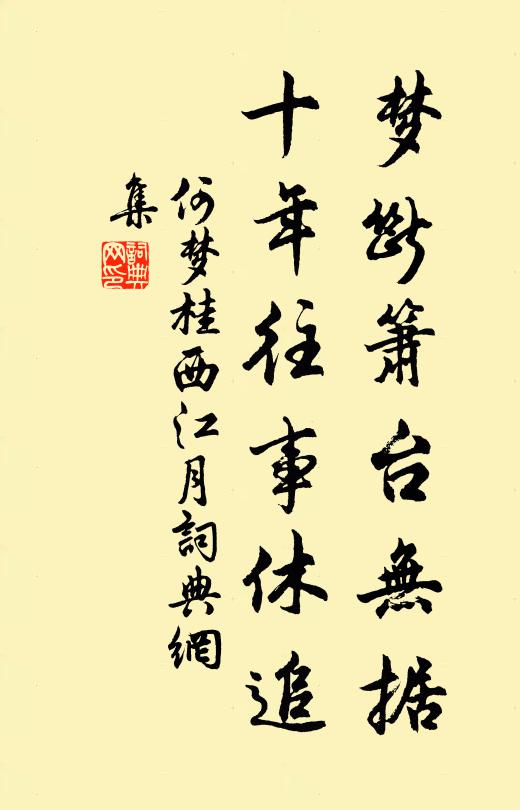 梦断箫台無据
十年往事休追
何梦桂西江月詞典網
集
詞典網印